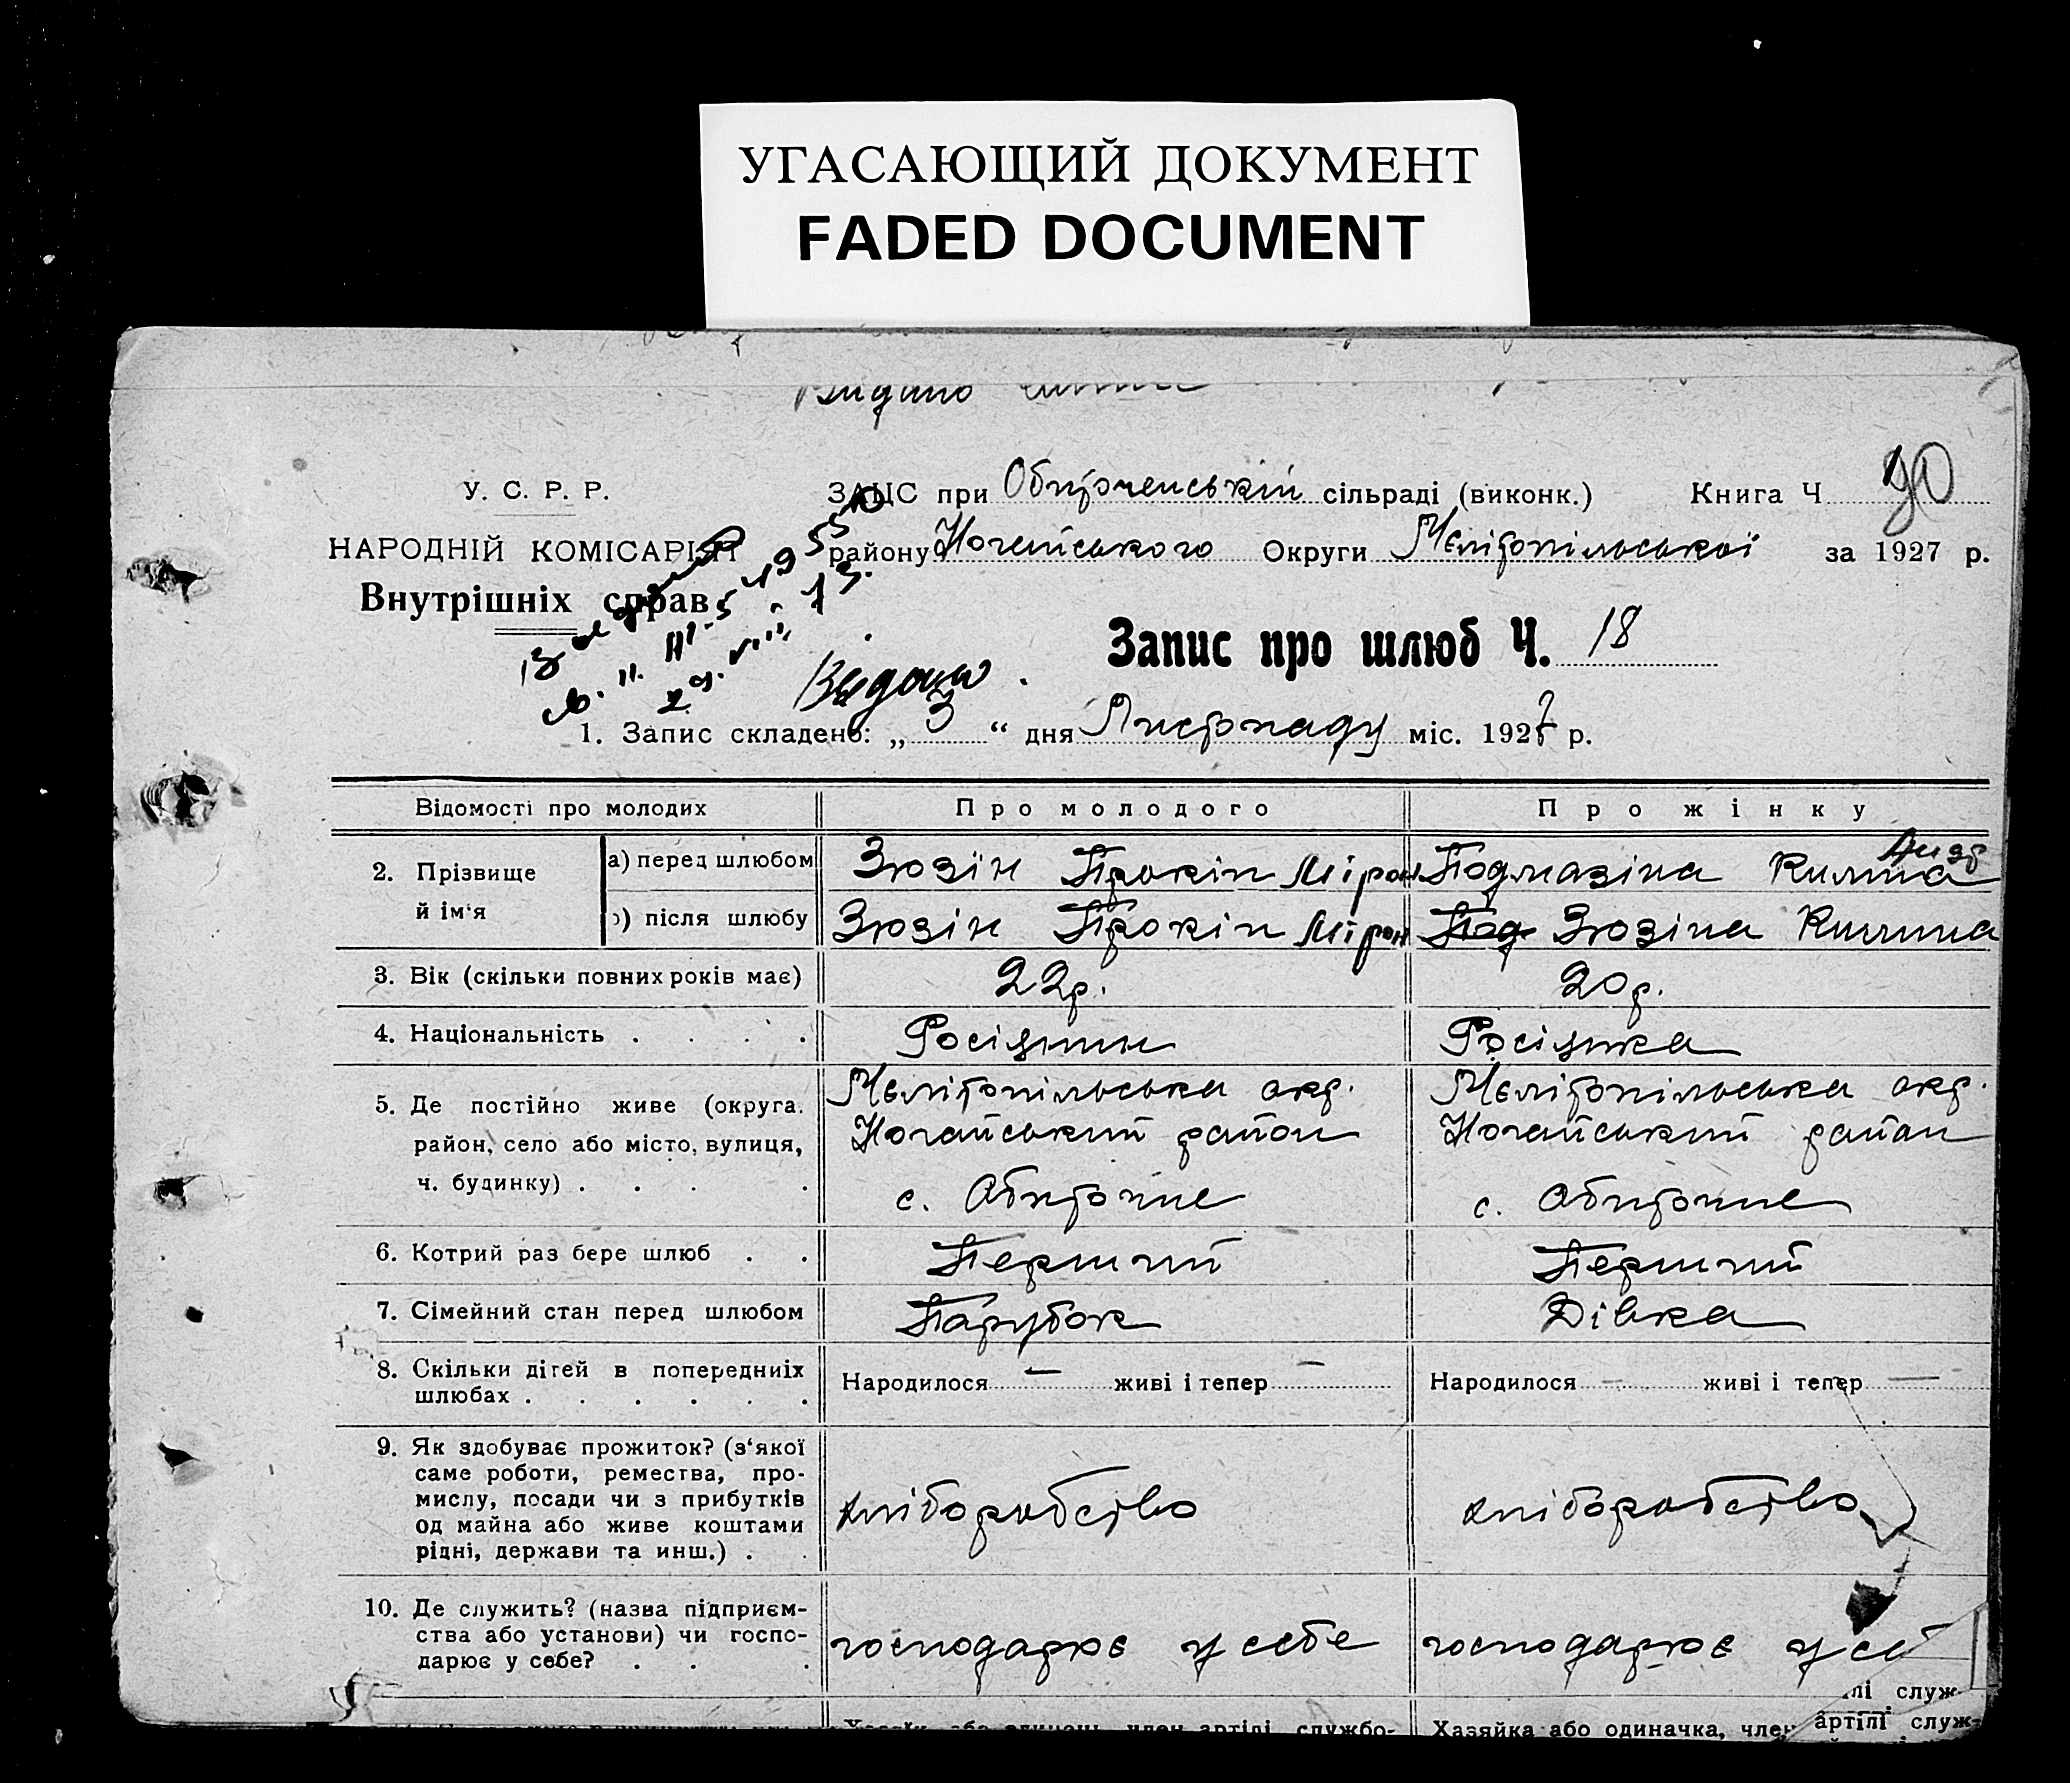 УГАСАЮЩИЙ ДОКУМЕНТ
FADED DOCUMENT
Видано
У. С. Р. Р.
НАРОДНІЙ КОМІСАРІЯТ
Внутрішніх справ
ЗАЦС при Обиточенській сільраді (виконк.) Книга Ч
району Ногайського Округи Мелітопільської за 1927 р.
Видано
Запис про шлюб Ч. 18
1. Запис складено: „ 3 “ дня Листопаду міс. 1927 р.
Відомості про молодих
Про молодого
Про жінку
2. Прізвище й ім‘я
а) перед шлюбом Зюзін Прокіп Мірон Подмазіна Килина
б) після шлюбу Зюзін Прокіп Мірон Под Зюзіна Килина
3. Вік (скільки повних років має) 22р. 20р.
4. Національність . . . . Росіянин Росіянка
5. Де постійно живе (округа, район, село або місто, вулиця, ч. будинку) . . . .
Мелітопільська окр. Мелітопільська окр.
Ногайський район Ногайський район
с. Обиточне с. Обиточне
6. Котрий раз бере шлюб . . Перший Перший
7. Сімейний стан перед шлюбом Парубок Дівка
8. Скільки дітей в попередниіх шлюбах . . . . . .
Народилося — живі і тепер — Народилося — живі і тепер —
9. Як здобуває прожиток? (з‘якої
саме роботи, ремества, про-
мислу, посади чи з прибутків
од майна або живе коштами
рідні, держави та инш.) . .
хліборобство хліборобство
10. Де служить? (назва підприєм-
ства або установи) чи госпо-
дарює у себе? . . .
господарює у себе господарює у се
лі служ-
Хазяїн або одинець, член артілі, службо-
Хазяйка або одиначка, член артілі служ-